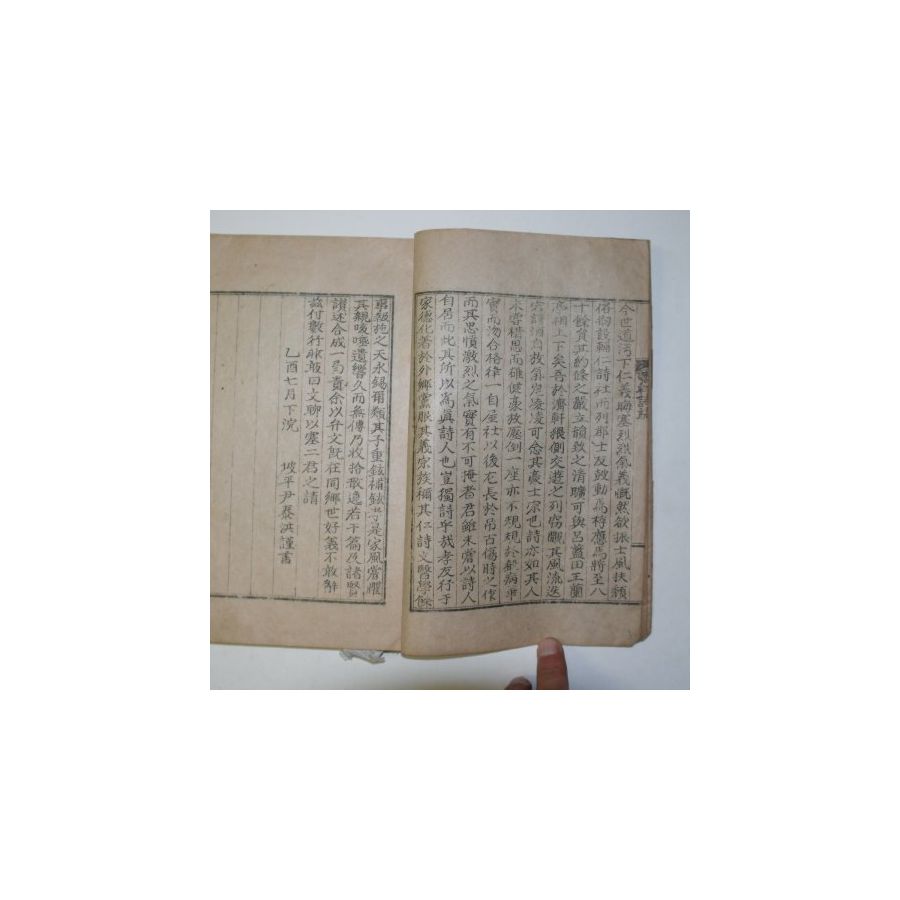 今世道污下仁義晦塞烈烈氣義慨然欲振士風扶頹
俗 設輔仁詩社而列郡士友鼓動 馬將至八
十餘員其約條之嚴立韻致之清曠可與呂藍田王蘭
亭相上下矣吾於濟軒猥側交遊之列窃觀其風流迭
宕詩酒自放氣岸凌凌可念其豪士 也詩亦如其人
不 積思而雄健豪放壓倒一座亦不規規於 病平
實而 合格律一自屋社以後尤長於吊古傷時之作
而其思憤激烈之氣實有不可掩者君雖未嘗以詩人
自居而此其所以為眞詩人也豈獨詩乎哉孝友行于
家德化著於外鄉黨服其義宗族稱其仁詩文醫學
 之天永錫爾類其子重鉉 鉉 是家風嘗懼
其親咳唾遺響久而無傳乃收拾散逸若干篇及諸賢
讚述合成一局責余以弁文旣在同鄉世好義不敢辭
茲付數行 敢曰文聊以塞二君之請
乙酉七月下浣 坡平尹泰洪謹書